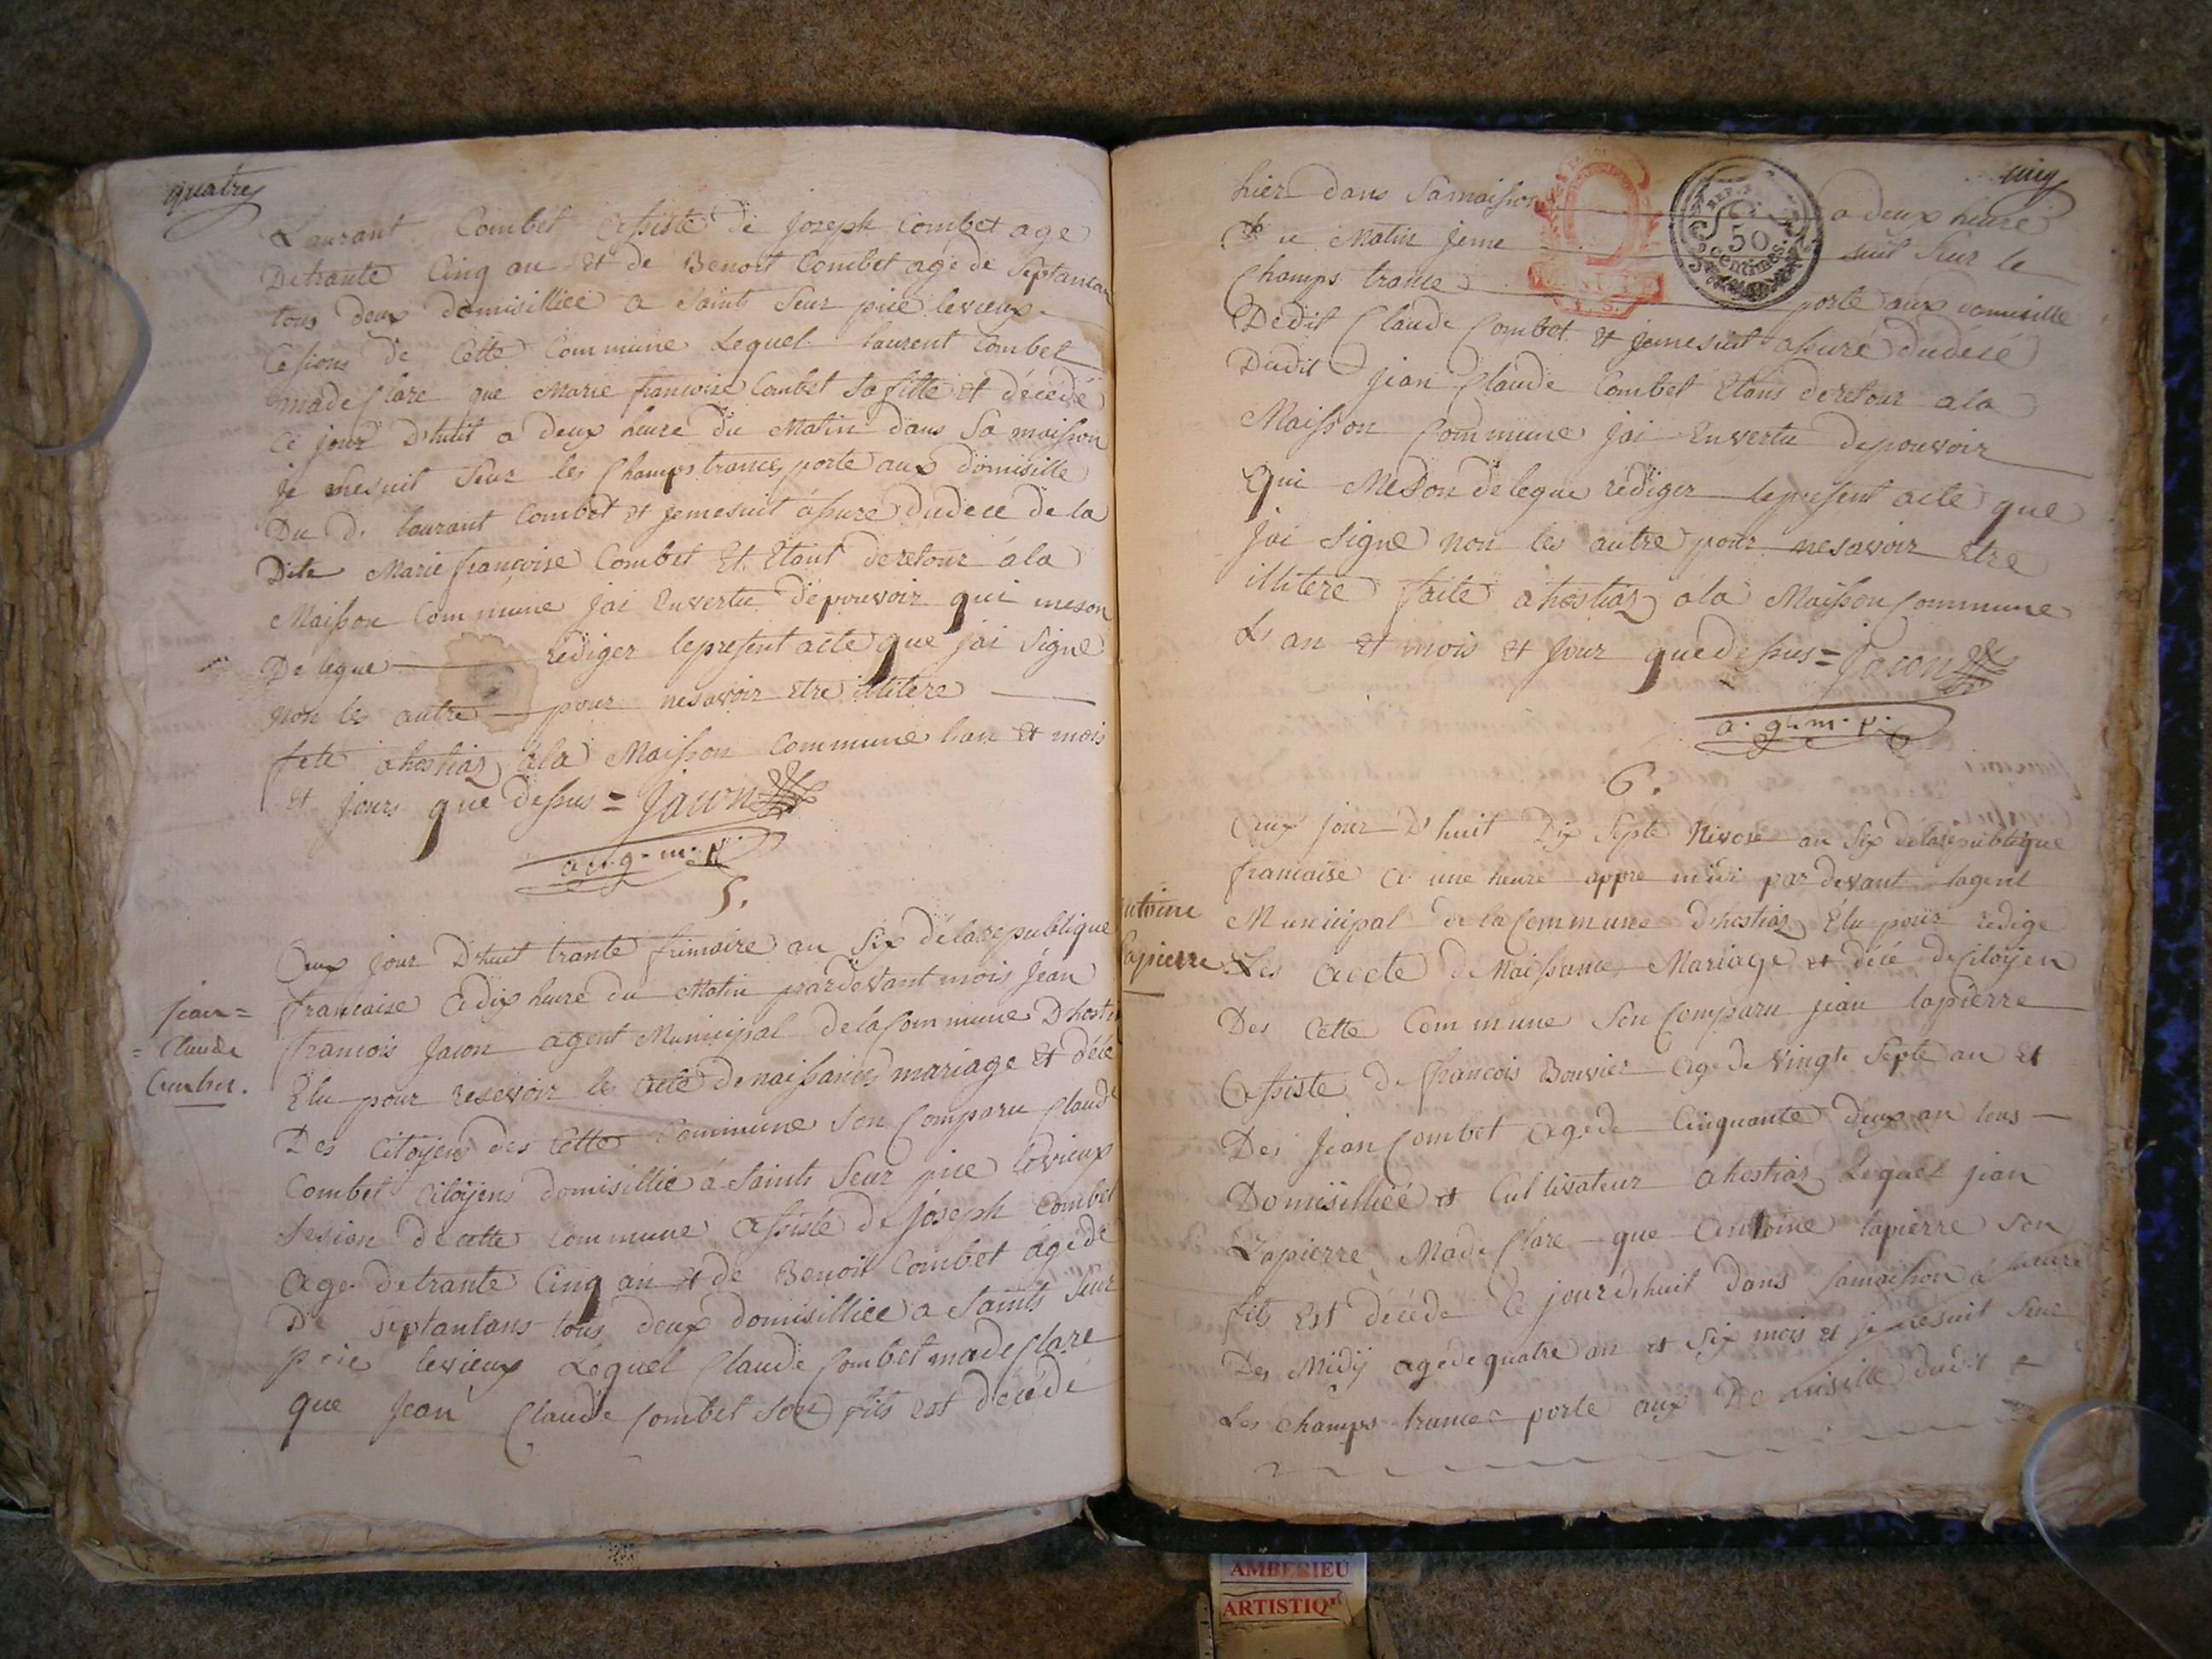 quatre
Laurant Combet assiste de joseph Combet age
Detrante Cinq an et de Benoit Combet agé de Septantan
tous deux domisilliee a Saints Seur pice levieux
Cesions de Cette Commune Lequel laurent Combet
madeclare que Marie francoise Combet Sa fille et décédé
Ce jour D'huit a deux heure du Matin dans Sa maisson
je mesuit Seur les Champs trances porte aux domisille
Du D. laurant Combet et jemesuit ássuré dudece de la
Dite Marie francoise Combet Et Etant deretour á la
Maisson Commune jai Envertu dépouvoir qui meson
Delegue rédiger lepresent acte que jai Signe
non les autre pour nesavoir Etre illitere
fete ahostiaz ála Maisson Commune lan et mois
et jours que dessus = jacon
a.g.m.p.
5.
jean =
= Claude
Combet.
Aux jour D'huit trante frimaire an Six délarepublique
francaise Adix heure du Matin pardevant mois jéan
francois Jacon agent Municipal delaCommune Dhosti
Elu pour resevoir le Acte denaissances mariage et déce
Des Citoyen des Cette Commune Son Comparu Claude
Combet Citoÿens domisillié á Saints Seur pice levieux
Sesion decette Commune Assiste de joseph Combet
Age detrante Cinq an et de Benoit Combet agéde
De Septantans tous deux domisilliée a Saints Seur
pice levieux Lequel Claude Combet madeclare
que jean Claude Combet Son fils est décédé
cinq
hier dans Samaisson a deux heure
Du Matin jeme suit Seur le
Champs trance porte aux domisille
Dedit Claude Combet et jemesuit assuré dudecé
Dudit jean Claude Combet Etans deretour ala
Maisson Commune jai Envertu depouvoir
Qui Meson délegue rédiger lepresent acte que
jai Signe non les autre pour nesavoir Etre
illitere faite ahostiaz ála Maisson Commune
L'an et mois et jour quedessus = jacon
a.g.m.p.
50
centimes.
6.
antoine
Lapierre
Aux jour D'huit Dix Septe Nivose an Six délarepublique
francaise a une heure appre midi pardevant lagent
Municipal de la Commune dhostiaz Élu pour redige
Les Acete de Naissance Mariage et décé de Citoyen
Des Cette Commune Son Comparu jean lapierre
Assiste de francois Bouvier Age de Vingt Septe an et
Des jean Combet Agede Cinquante deux an tous
Domisilliéé et Cultivateur ahostiaz Lequel jean
Lapierre Madeclare que Antoine lapierre Son
fils Est décéde Ce jour d'huit dans Samaisson á heure
Des Midÿ agédequatre an et Six mois et je mesuit Seur
Les champs trance porte aux Domisille dudit
AMBERIEU
ARTISTIQ